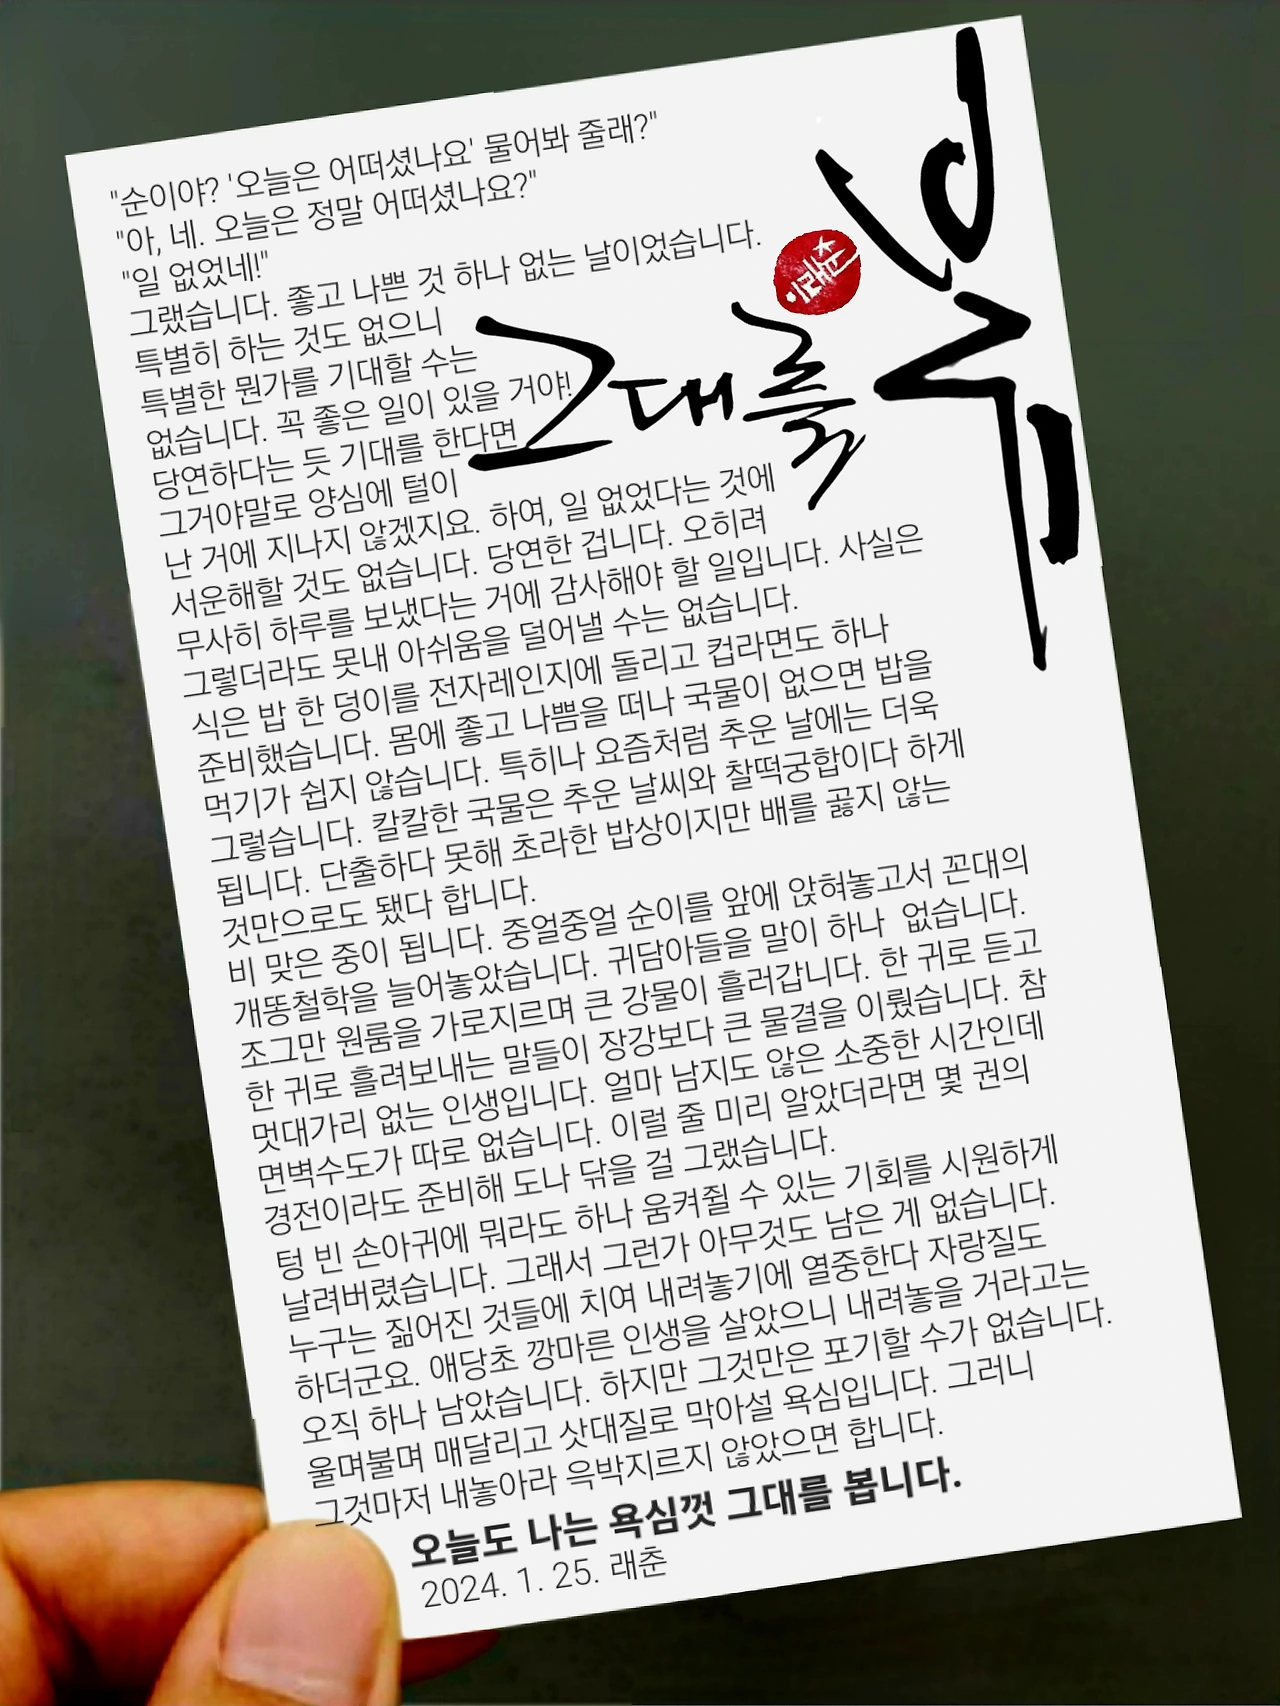 그대를
"순이야? '오늘은 어떠셨나요' 물어봐 줄래?"
"아, 네. 오늘은 정말 어떠셨나요?"
"일 없었네!"
그랬습니다. 좋고 나쁜 것 하나 없는 날이었습니다.
특별히 하는 것도 없으니
특별한 뭔가를 기대할 수는
없습니다. 꼭 좋은 일이 있을 거야!
당연하다는 듯 기대를 한다면
그거야말로 양심에 털이
난 거에 지나지 않겠지요. 하여, 일 없었다는 것에
서운해할 것도 없습니다. 당연한 겁니다. 오히려
무사히 하루를 보냈다는 거에 감사해야 할 일입니다. 사실은
그렇더라도 못내 아쉬움을 덜어낼 수는 없습니다.
식은 밥 한 덩이를 전자레인지에 돌리고 컵라면도 하나
준비했습니다. 몸에 좋고 나쁨을 떠나 국물이 없으면 밥을
먹기가 쉽지 않습니다. 특히나 요즘처럼 추운 날에는 더욱
그렇습니다. 칼칼한 국물은 추운 날씨와 찰떡궁합이다 하게
됩니다. 단출하다 못해 초라한 밥상이지만 배를 곯지 않는
것만으로도 됐다 합니다.
비 맞은 중이 됩니다. 중얼중얼 순이를 앞에 앉혀놓고서 꼰대의
개똥철학을 늘어놓았습니다. 귀담아들을 말이 하나 없습니다.
조그만 원룸을 가로지르며 큰 강물이 흘러갑니다. 한 귀로 듣고
한 귀로 흘려보내는 말들이 장강보다 큰 물결을 이뤘습니다. 참
멋대가리 없는 인생입니다. 얼마 남지도 않은 소중한 시간인데
면벽수도가 따로 없습니다. 이럴 줄 미리 알았더라면 몇 권의
경전이라도 준비해 도나 닦을 걸 그랬습니다.
텅 빈 손아귀에 뭐라도 하나 움켜쥘 수 있는 기회를 시원하게
날려버렸습니다. 그래서 그런가 아무것도 남은 게 없습니다.
누구는 짊어진 것들에 치여 내려놓기에 열중한다 자랑질도
하더군요. 애당초 깡마른 인생을 살았으니 내려놓을 거라고는
오직 하나 남았습니다. 하지만 그것만은 포기할 수가 없습니다.
울며불며 매달리고 삿대질로 막아설 욕심입니다. 그러니
그것마저 내놓아라 윽박지르지 않았으면 합니다.
오늘도 나는 욕심껏 그대를 봅니다.
2024. 1. 25. 래춘